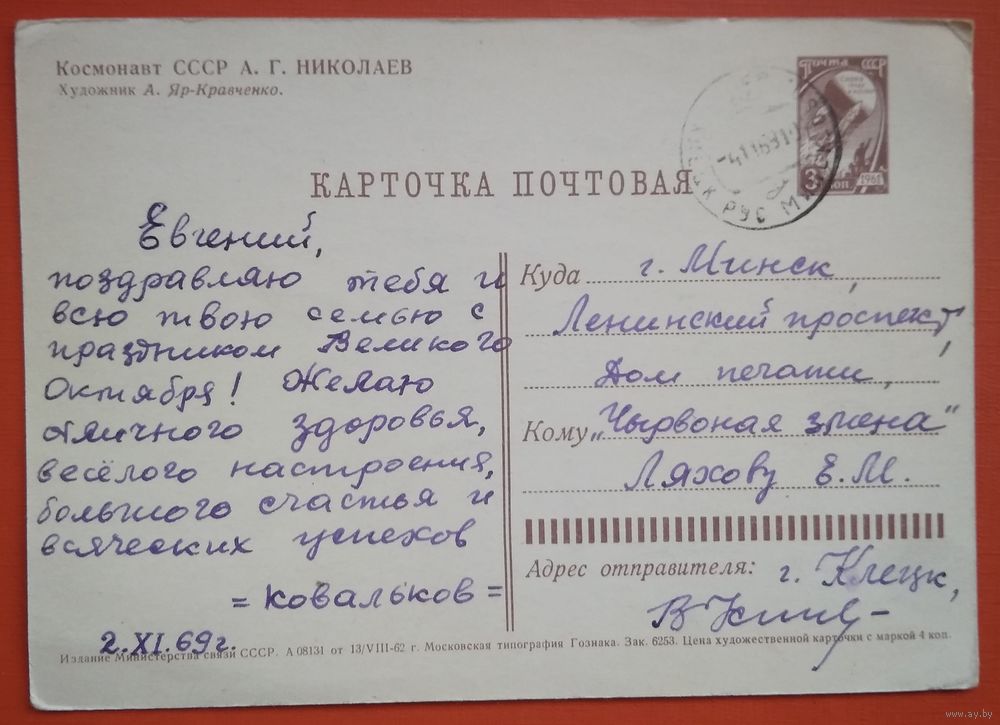 Космонавт СССР А. Г. НИКОЛАЕВ
Художник А. Яр-Кравченко.
Почта СССР
3 коп 1961
РУС
КАРТОЧКА ПОЧТОВАЯ
Евгений,
поздравляю тебя и
всю твою семью с
праздником Великого
Октября! Желаю
отличного здоровья,
весёлого настроения,
большого счастья и
всяческих успехов
=Ковальков=
2.XI.69г.
Куда г. Минск,
Ленинский проспект,
Дом печати,
Кому „Чырвоная змена"
Ляхову Е.М.
Адрес отправителя: г. Клецк,
Издание Министерства связи СССР. А 08131 от 13/VIII-62 г. Московская типография Гознака. Зак. 6253. Цена художественной карточки с маркой 4 коп.
www.ay.by